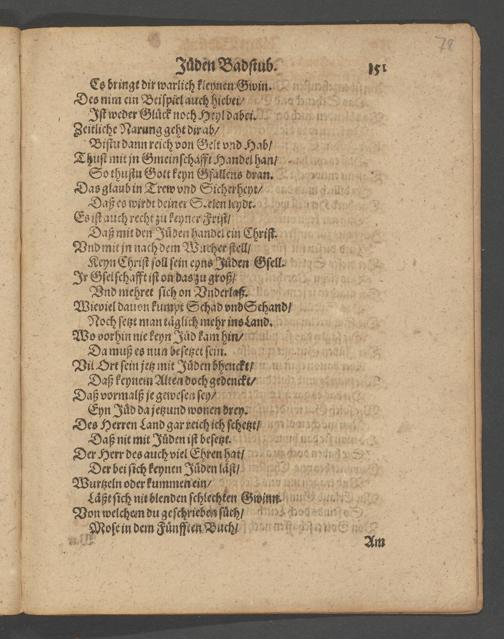 78
Jüden Badstub. 151
Es bringt dir warlich kleynen Gwin.
Des nim ein Beispiel auch hiebei/
Ist weder Glück noch Heyl dabei.
Zeitliche Narung geht dir ab/
Bistu dann reich von Gelt vnd Hab/
Thust mit in Gmeinschafft Handel han/
So thustu Gott keyn Gfallens dran.
Das glaub in Trew vnd Sicherheyt/
Daß es wirdt deiner Seelen leydt.
Es ist auch recht zu keyner Frist/
Daß mit den Jüden handel ein Christ.
Vnd mit jn nach dem Wucher stell/
Keyn Christ soll sein eyns Jüden Gsell.
Jr Gselschafft ist on das zu groß/
Vnd mehret sich on Vnderlaß.
Wieviel dauon kumpt Schad vnd Schand/
Noch setzt man täglich mehr ins Land.
Wo vorhin nie keyn Jüd kam hin/
Da muß es nun besetzet sein.
Vil Ort sein jetz mit Jüden bhenckt/
Daß keynem Alten doch gedenckt/
Daß vormalß je gewesen sey/
Eyn Jüd da jetzund wonen drey.
Des Herren Land gar reich ich schetzt/
Daß nit mit Jüden ist besetzt.
Der Herr des auch viel Ehren hat/
Der bei sich keynen Jüden läst/
Wurtzeln oder kummen ein/
Läßt sich nit blenden schlechten Gwinn.
Von welchem du geschrieben süch/
Mose in dem Fünfften Buch/
Am